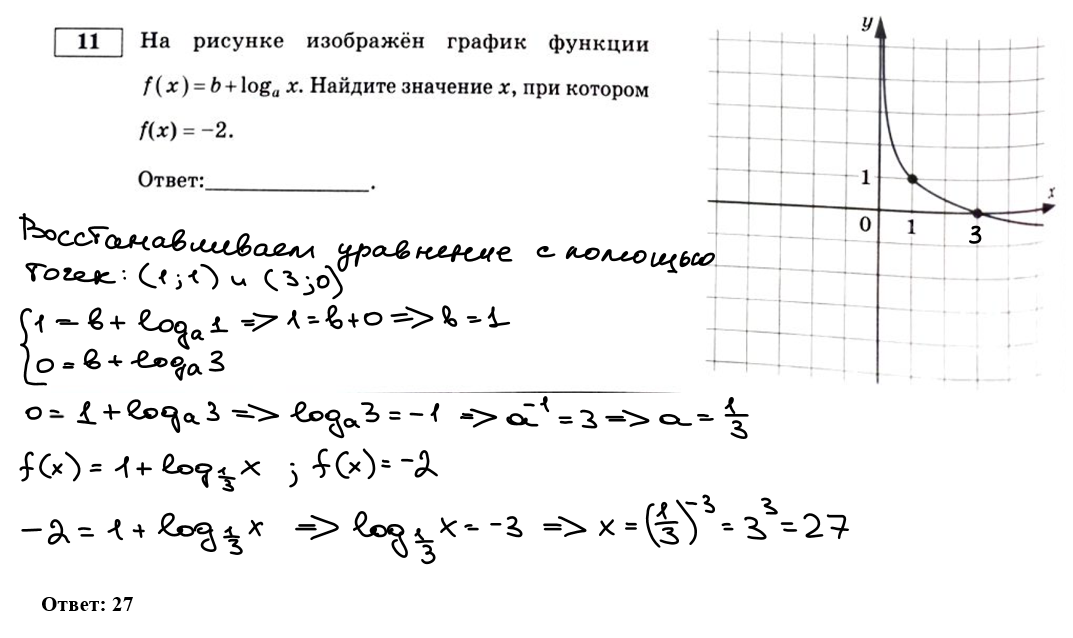 11 На рисунке изображён график функции
f(x) = b + logₐ x. Найдите значение x, при котором
f(x) = −2.
Ответ:_______________.
y
1
x
0 1 3
Восстанавливаем уравнение с помощью
точек: (1;1) и (3;0)
{1 = b + logₐ1 => 1 = b + 0 => b = 1
0 = b + logₐ3
0 = 1 + logₐ3 => logₐ3 = -1 => a⁻¹ = 3 => a = 1/3
f(x) = 1 + log_{1/3} x ; f(x) = -2
-2 = 1 + log_{1/3} x => log_{1/3} x = -3 => x = (1/3)⁻³ = 3³ = 27
Ответ: 27